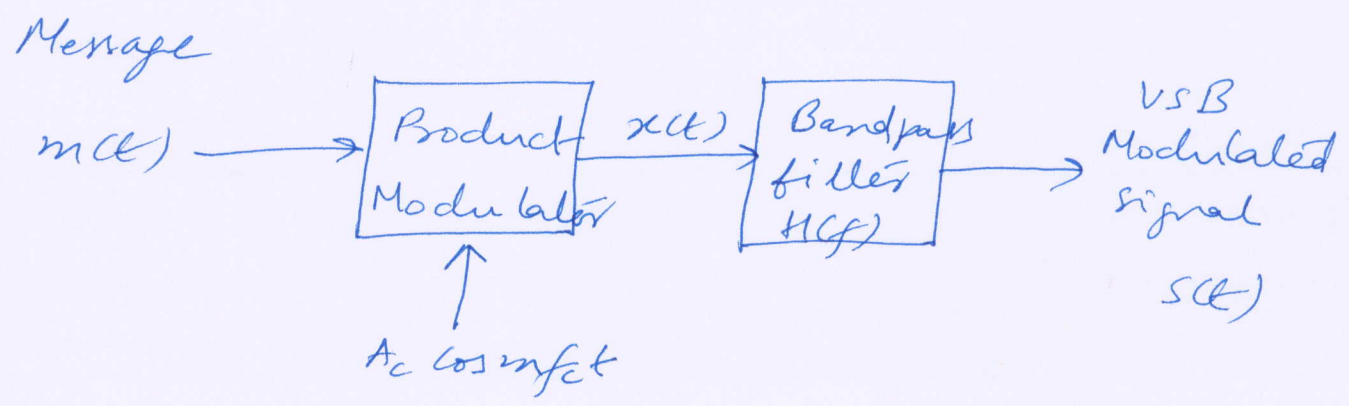 Message
m(t)
Product
Modulator
x(t)
Bandpass
filter
H(f)
VSB
Modulated
signal
s(t)
A_c cos 2πf_c t